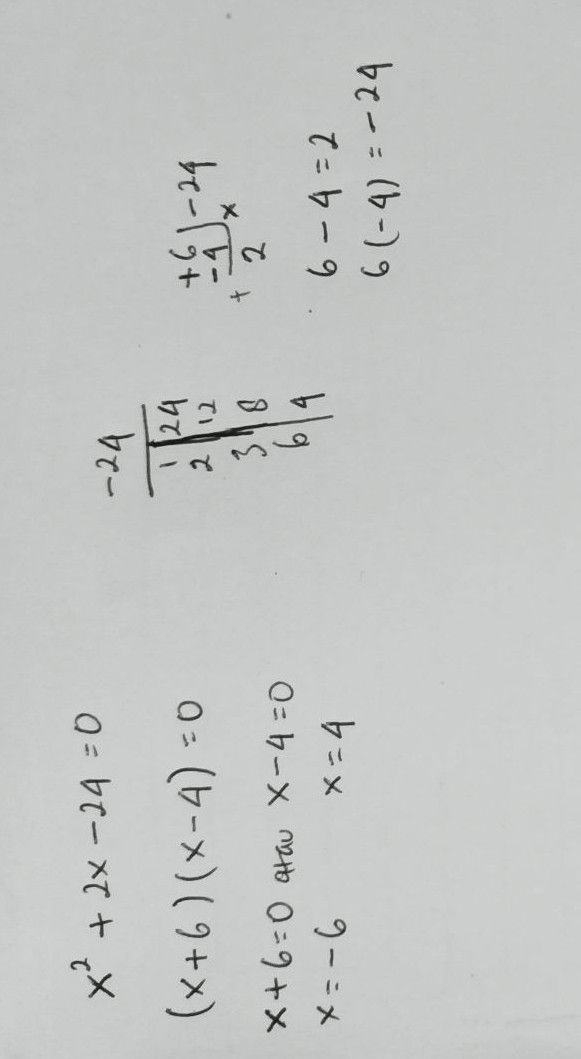 x² + 2x - 24 = 0
(x+6)(x-4) = 0
x+6=0 atau x-4=0
x=-6 x=4
-24
1 24
2 12
3 8
6 4
+6
-4 -24
+ 2 x
6 - 4 = 2
6(-4) = -24